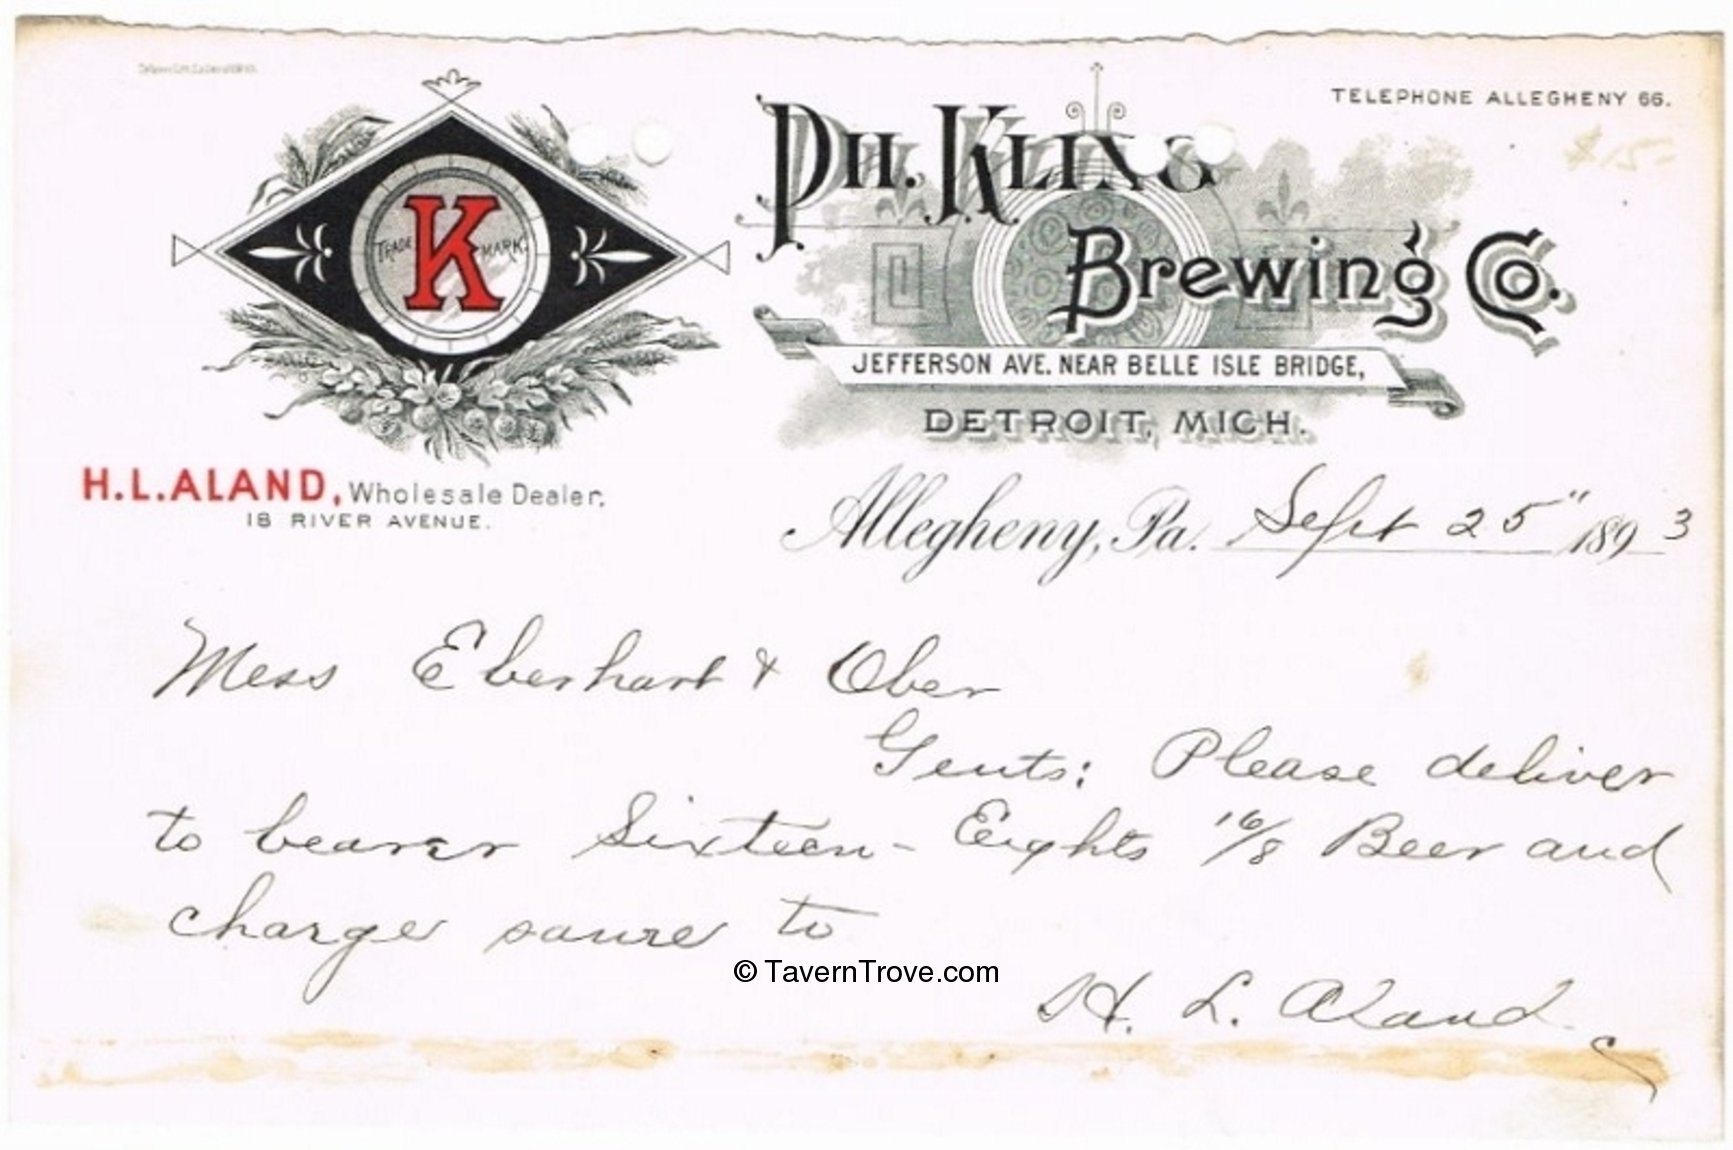 TELEPHONE ALLEGHENY 66.
K
TRADE MARK.
PH. KLING
BREWING CO.
JEFFERSON AVE. NEAR BELLE ISLE BRIDGE,
DETROIT, MICH.
H.L.ALAND, Wholesale Dealer,
18 RIVER AVENUE.
Allegheny, Pa. Sept 25" 1893
Mess Eberhart & Ober
Gents: Please deliver
to bearer Sixteen - Eights 16/8 Beer and
charge same to
© TavernTrove.com
H. L. Aland